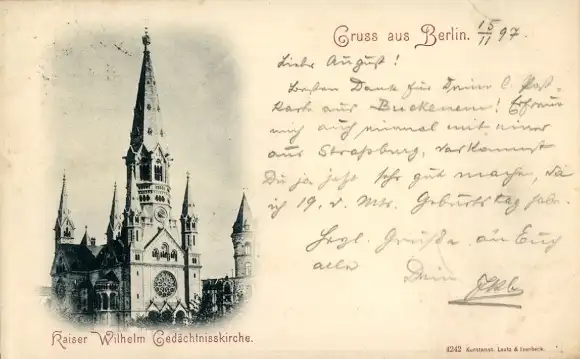 Gruss aus Berlin. 15/11 97.
Liebe August!
Besten Dank für Deine l. Post-
karte aus Buckenem! Erfreue
mich auch einmal mit einer
aus Straßburg, das kannst
Du ja jetzt sehr gut machen, da
ich 19. d. Mts. Geburtstag habe.
Hrzl. Grüße an Euch
alle Dein
Kaiser Wilhelm Gedächtnisskirche.
4242 Kunstanst. Lautz & Isenbeck.